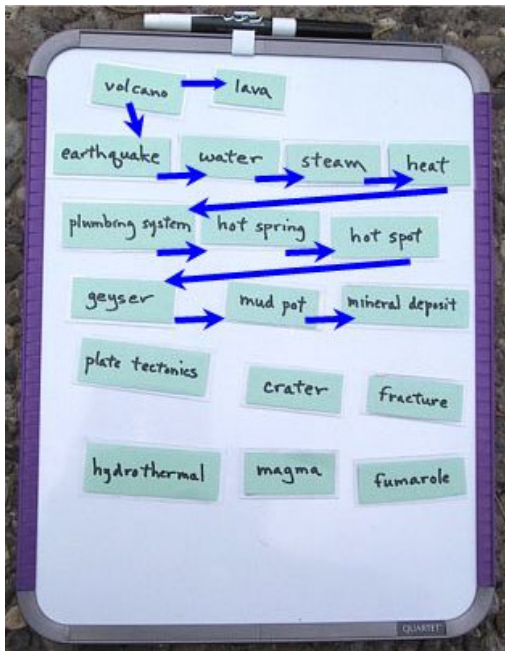 volcano lava
earthquake water steam heat
plumbing system hot spring hot spot
geyser mud pot mineral deposit
plate tectonics crater fracture
hydrothermal magma fumarole
QUARTET